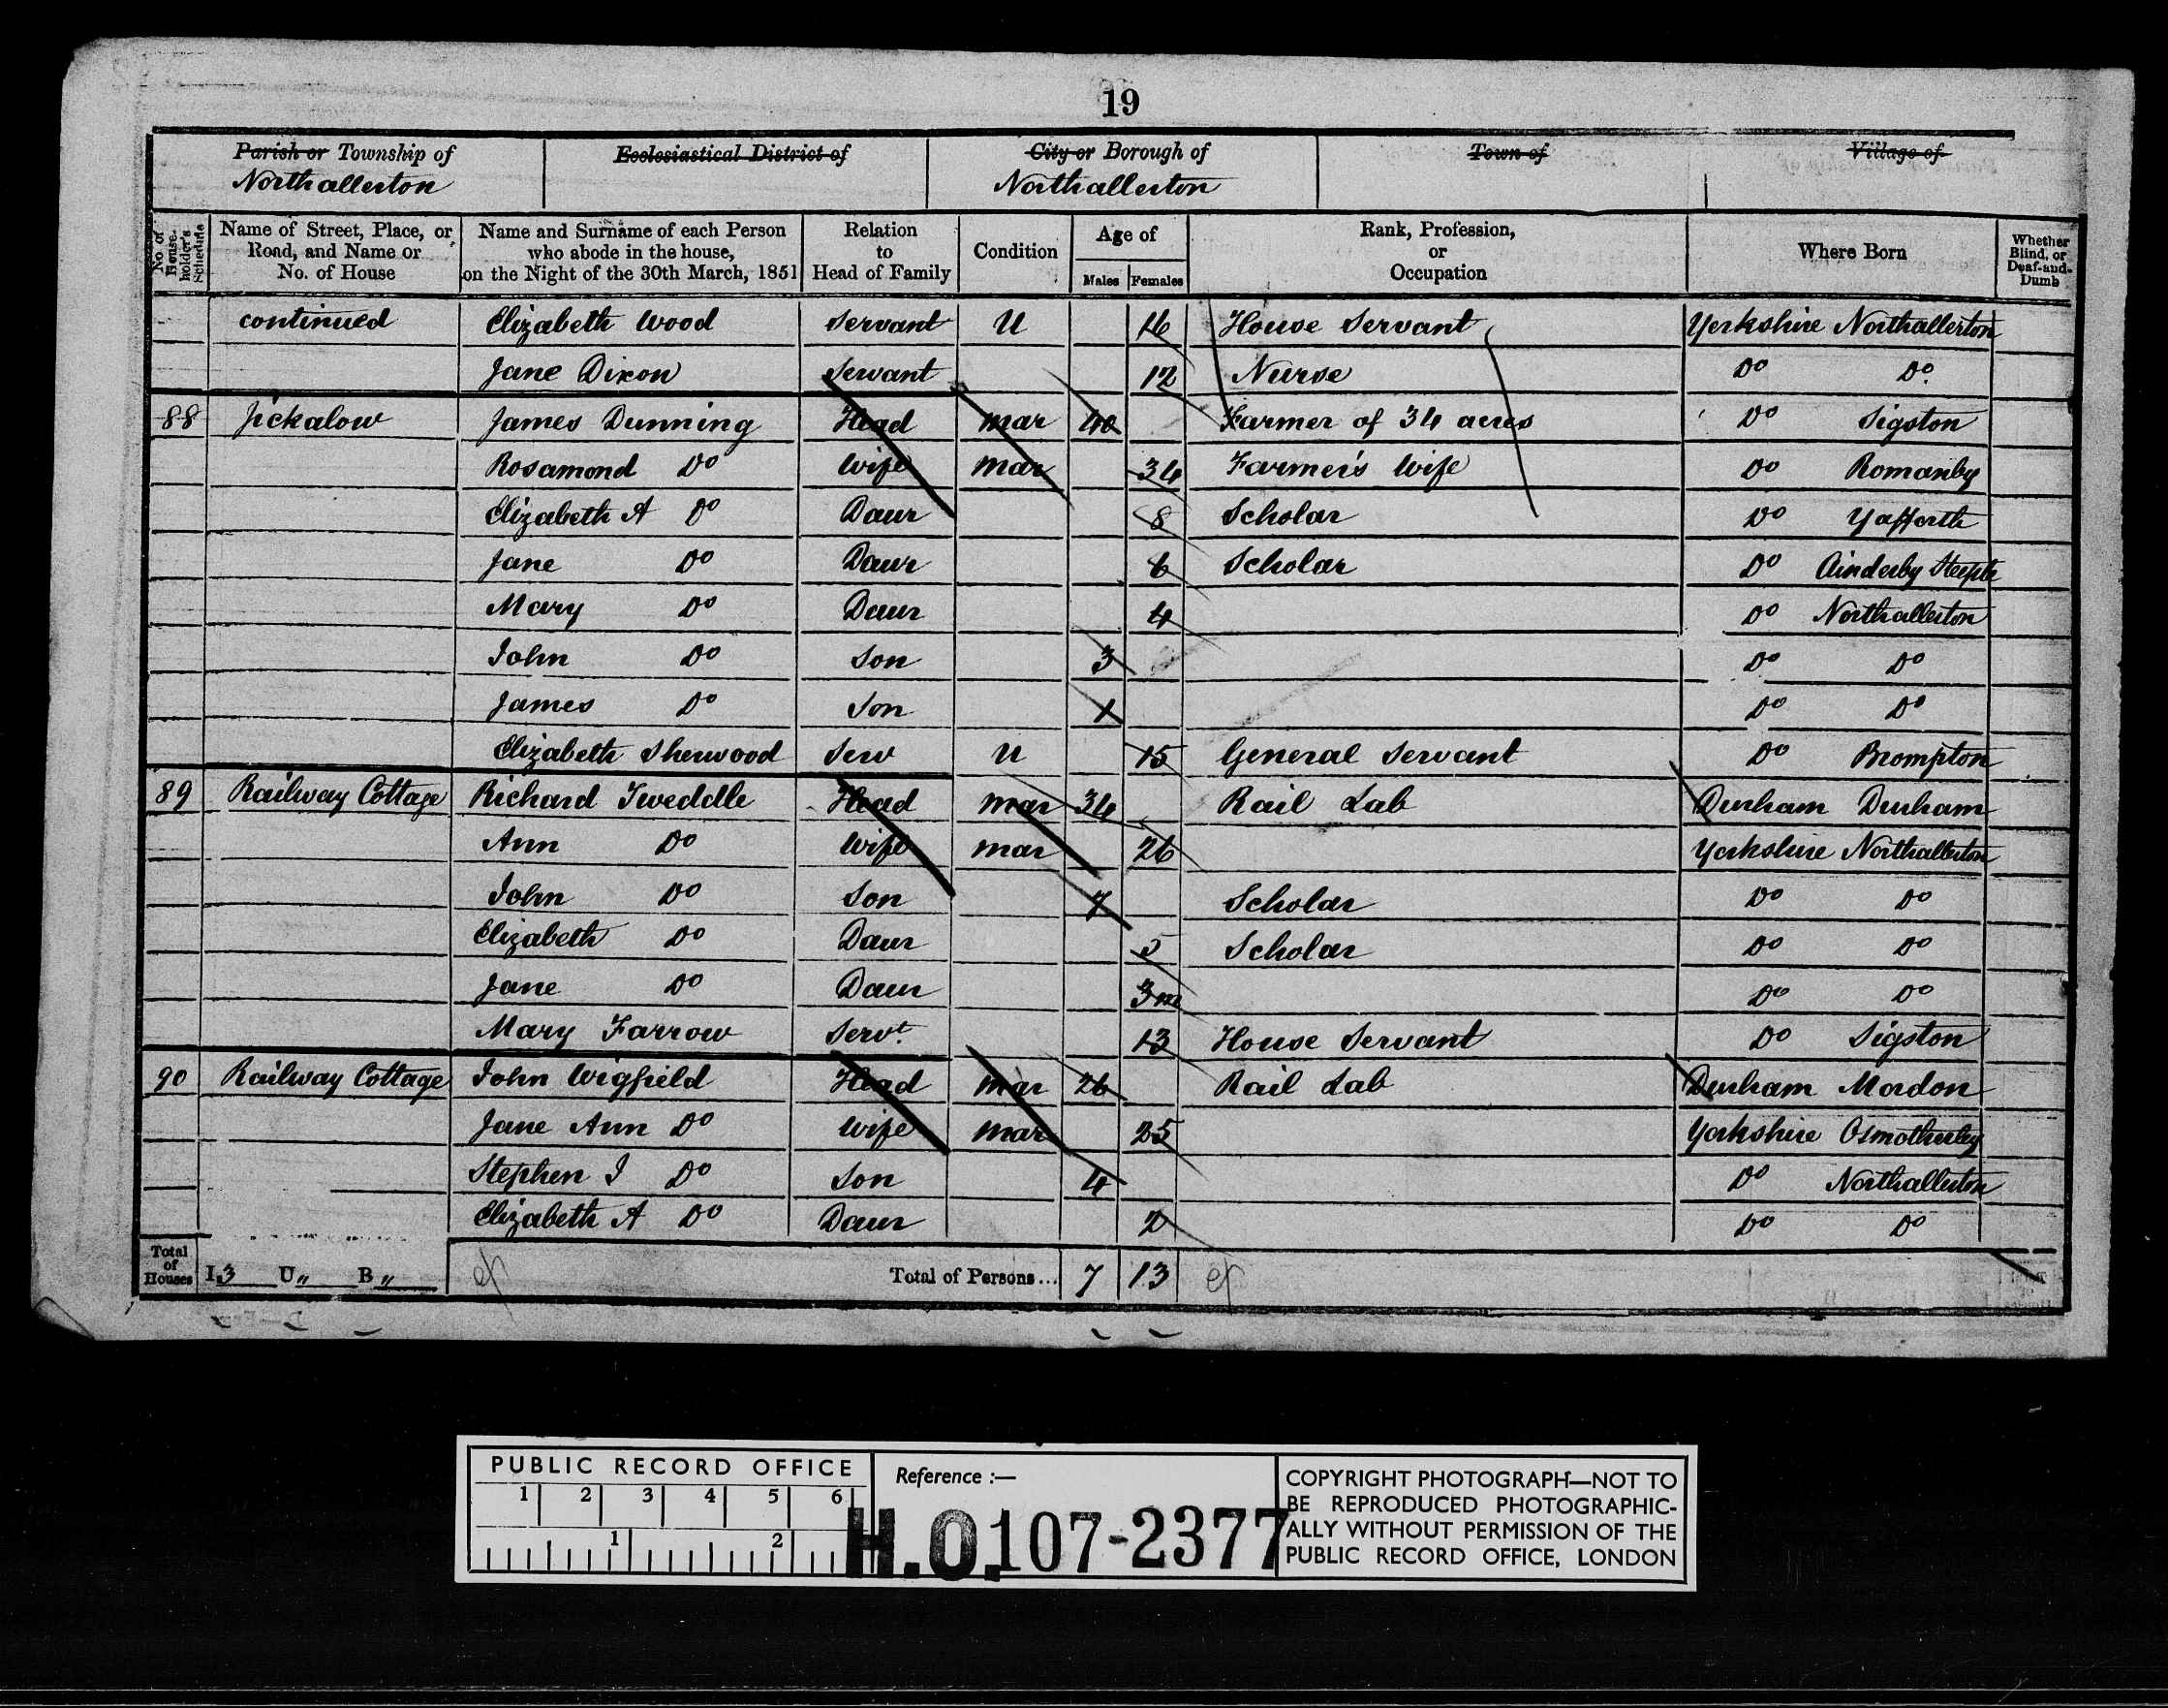 19
Parish or Township of Ecclesiastical District of City or Borough of Town of Village of
Northallerton Northallerton
No. of House-holder's Schedule Name of Street, Place, or Road, and Name or No. of House Name and Surname of each Person who abode in the house, on the Night of the 30th March, 1851 Relation to Head of Family Condition Age of Males Females Rank, Profession, or Occupation Where Born Whether Blind, or Deaf-and-Dumb
continued Elizabeth Wood Servant U 16 House Servant Yorkshire Northallerton
Jane Dixon Servant 12 Nurse Do Do
88 Jickalow James Dunning Head Mar 40 Farmer of 34 acres Do Sigston
Rosamond Do Wife Mar 34 Farmer's Wife Do Romanby
Elizabeth A Do Daur 8 Scholar Do Yafforth
Jane Do Daur 6 Scholar Do Ainderby Steeple
Mary Do Daur 4 Do Northallerton
John Do Son 3 Do Do
James Do Son 1 Do Do
Elizabeth Sherwood Serv U 15 General Servant Do Brompton
89 Railway Cottage Richard Tweddle Head Mar 34 Rail Lab Durham Durham
Ann Do Wife Mar 26 Yorkshire Northallerton
John Do Son 7 Scholar Do Do
Elizabeth Do Daur 5 Scholar Do Do
Jane Do Daur 3m Do Do
Mary Farrow Servt. 13 House Servant Do Sigston
90 Railway Cottage John Wigfield Head Mar 26 Rail Lab Durham Mordon
Jane Ann Do Wife Mar 25 Yorkshire Osmotherley
Stephen J Do Son 4 Do Northallerton
Elizabeth A Do Daur 2 Do Do
Total of Houses I. 3 U " B " Total of Persons... 7 13
PUBLIC RECORD OFFICE
1 2 3 4 5 6
1 2
Reference :—
H.O. 107-2377
COPYRIGHT PHOTOGRAPH—NOT TO
BE REPRODUCED PHOTOGRAPHIC-
ALLY WITHOUT PERMISSION OF THE
PUBLIC RECORD OFFICE, LONDON